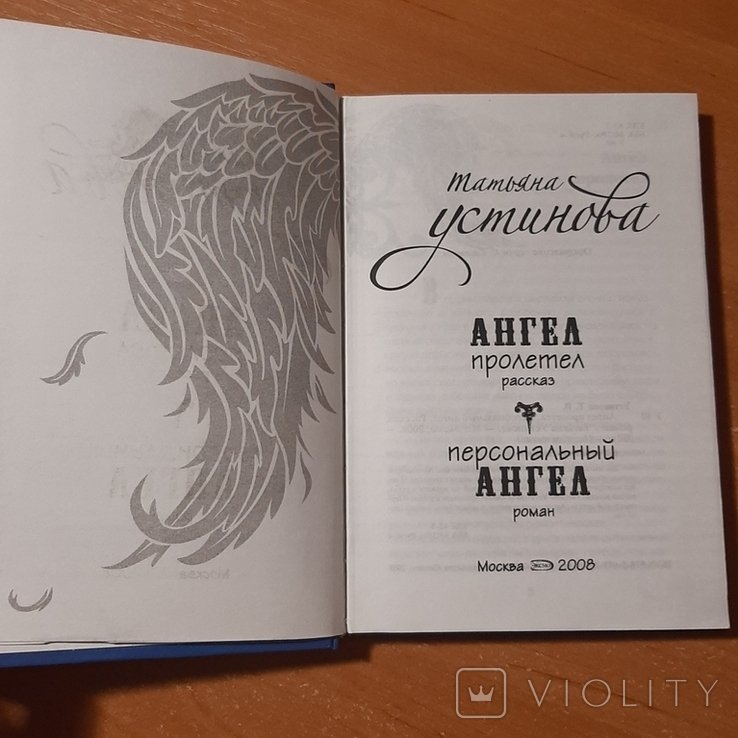 Татьяна
устинова
АНГЕЛ
пролетел
рассказ
персональный
АНГЕЛ
роман
Москва ЭКСМО 2008
VIOLITY